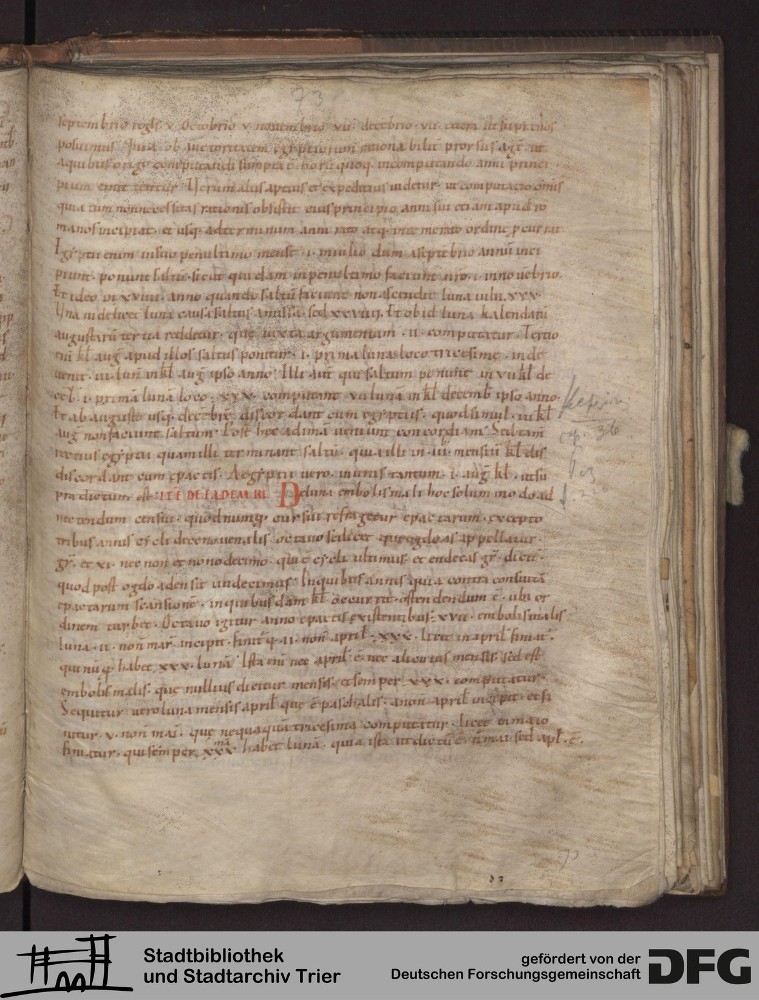 73
septembrio regł v. Octobrio v. novembrio vii decebrio vii
posuimus Quia ob auctoritatem egyptiorum rationabilit prorsus agit ut
a quibus origo computandi sumpta ē. horū quoq; in computando anni princi
pium Verum aliis aptius et expeditius uidetur ut computatio omis
quia tum non necessitas rationis obsistit eius principio anni sui etiam apud ro
manos incipiat. et usq; ad terminum anni rato atq; ordine
Egyptii enim in suo penultimo mense .i. in iulio dum a septēbrio annū inci
piunt ponunt saltū sicut quidam in penultimo faciunt nrō .i. in novēbrio.
Et ideo in xviiii anno quando saltū faciunt non ascendit luna in luñ. xxx.
Una uidelicet luna causa saltus amissa. sed xxviiii. Et ob id luna kalendarū
augustarū tertia redditur. que iuxta argumentum .ii. computatur. Tertio
eni kł aug apud illos saltus ponitur .i. prima luna loco tricesime. inde
uenit .iii. luñ in kł aug ipso anno. Illi aut qui saltum ponunt in vii kł de
cēb .i. prima lunā loco .xxx. computant vii lunā in kł decemb ipso anno.
Et ab augusto usq; decebrē discordant cum egyptiis. quod simul .iii kł
aug non faciunt saltum. Post hec ad unā ueniunt concordiam. Sed tam
rectius egyptii quam illi terminant saltū. quia illi in .iiii mensiū kł dis
discordant cum epactis. Aegyptii uero. in unis tantum .i. aug kł. ut su
pra dictum est. ITĒ DE EADEM RE De luna embolismali hoc solum modo ad
nectendum censui. quod numq; cursui refragetur epactarum. excepto
tribus annis cycli decennovenalis. octavo scilicet qui ogdoas appellatur
gr. et xi. nec non et nono decimo. qui ē cycli ultimus. et endecas gr. dicit.
quod post ogdoaden sit undecimus. In quibus annis quia contra consuetā
epactarum scansionē. in quibusdam kł occurrit. ostendendum ē. ubi or
dinem turbet. Octavo igitur anno epactis existentibus. xvii. embolismalis
luna .ii. non mar incipit. finitq; ii. non april. xxx. licet in april finiat.
qui nūq; habet xxx. lunā. Ista eni nec april ē. nec alicuius mensis. sed est
embolismalis. que nullius dicitur mensis. et semper xxx. computatur.
Sequitur uero luna mensis april que ē paschalis. a non april incipit. et fi
nitur .v. non mai. que nequaquā tricesima computatur. licet in maio
finiatur. qui semper xxx habet lunā. quia ista ut dictū ē. n̄ mai sed apł. ē.
cap. 36
Stadtbibliothek
und Stadtarchiv Trier
gefördert von der
Deutschen Forschungsgemeinschaft
DFG